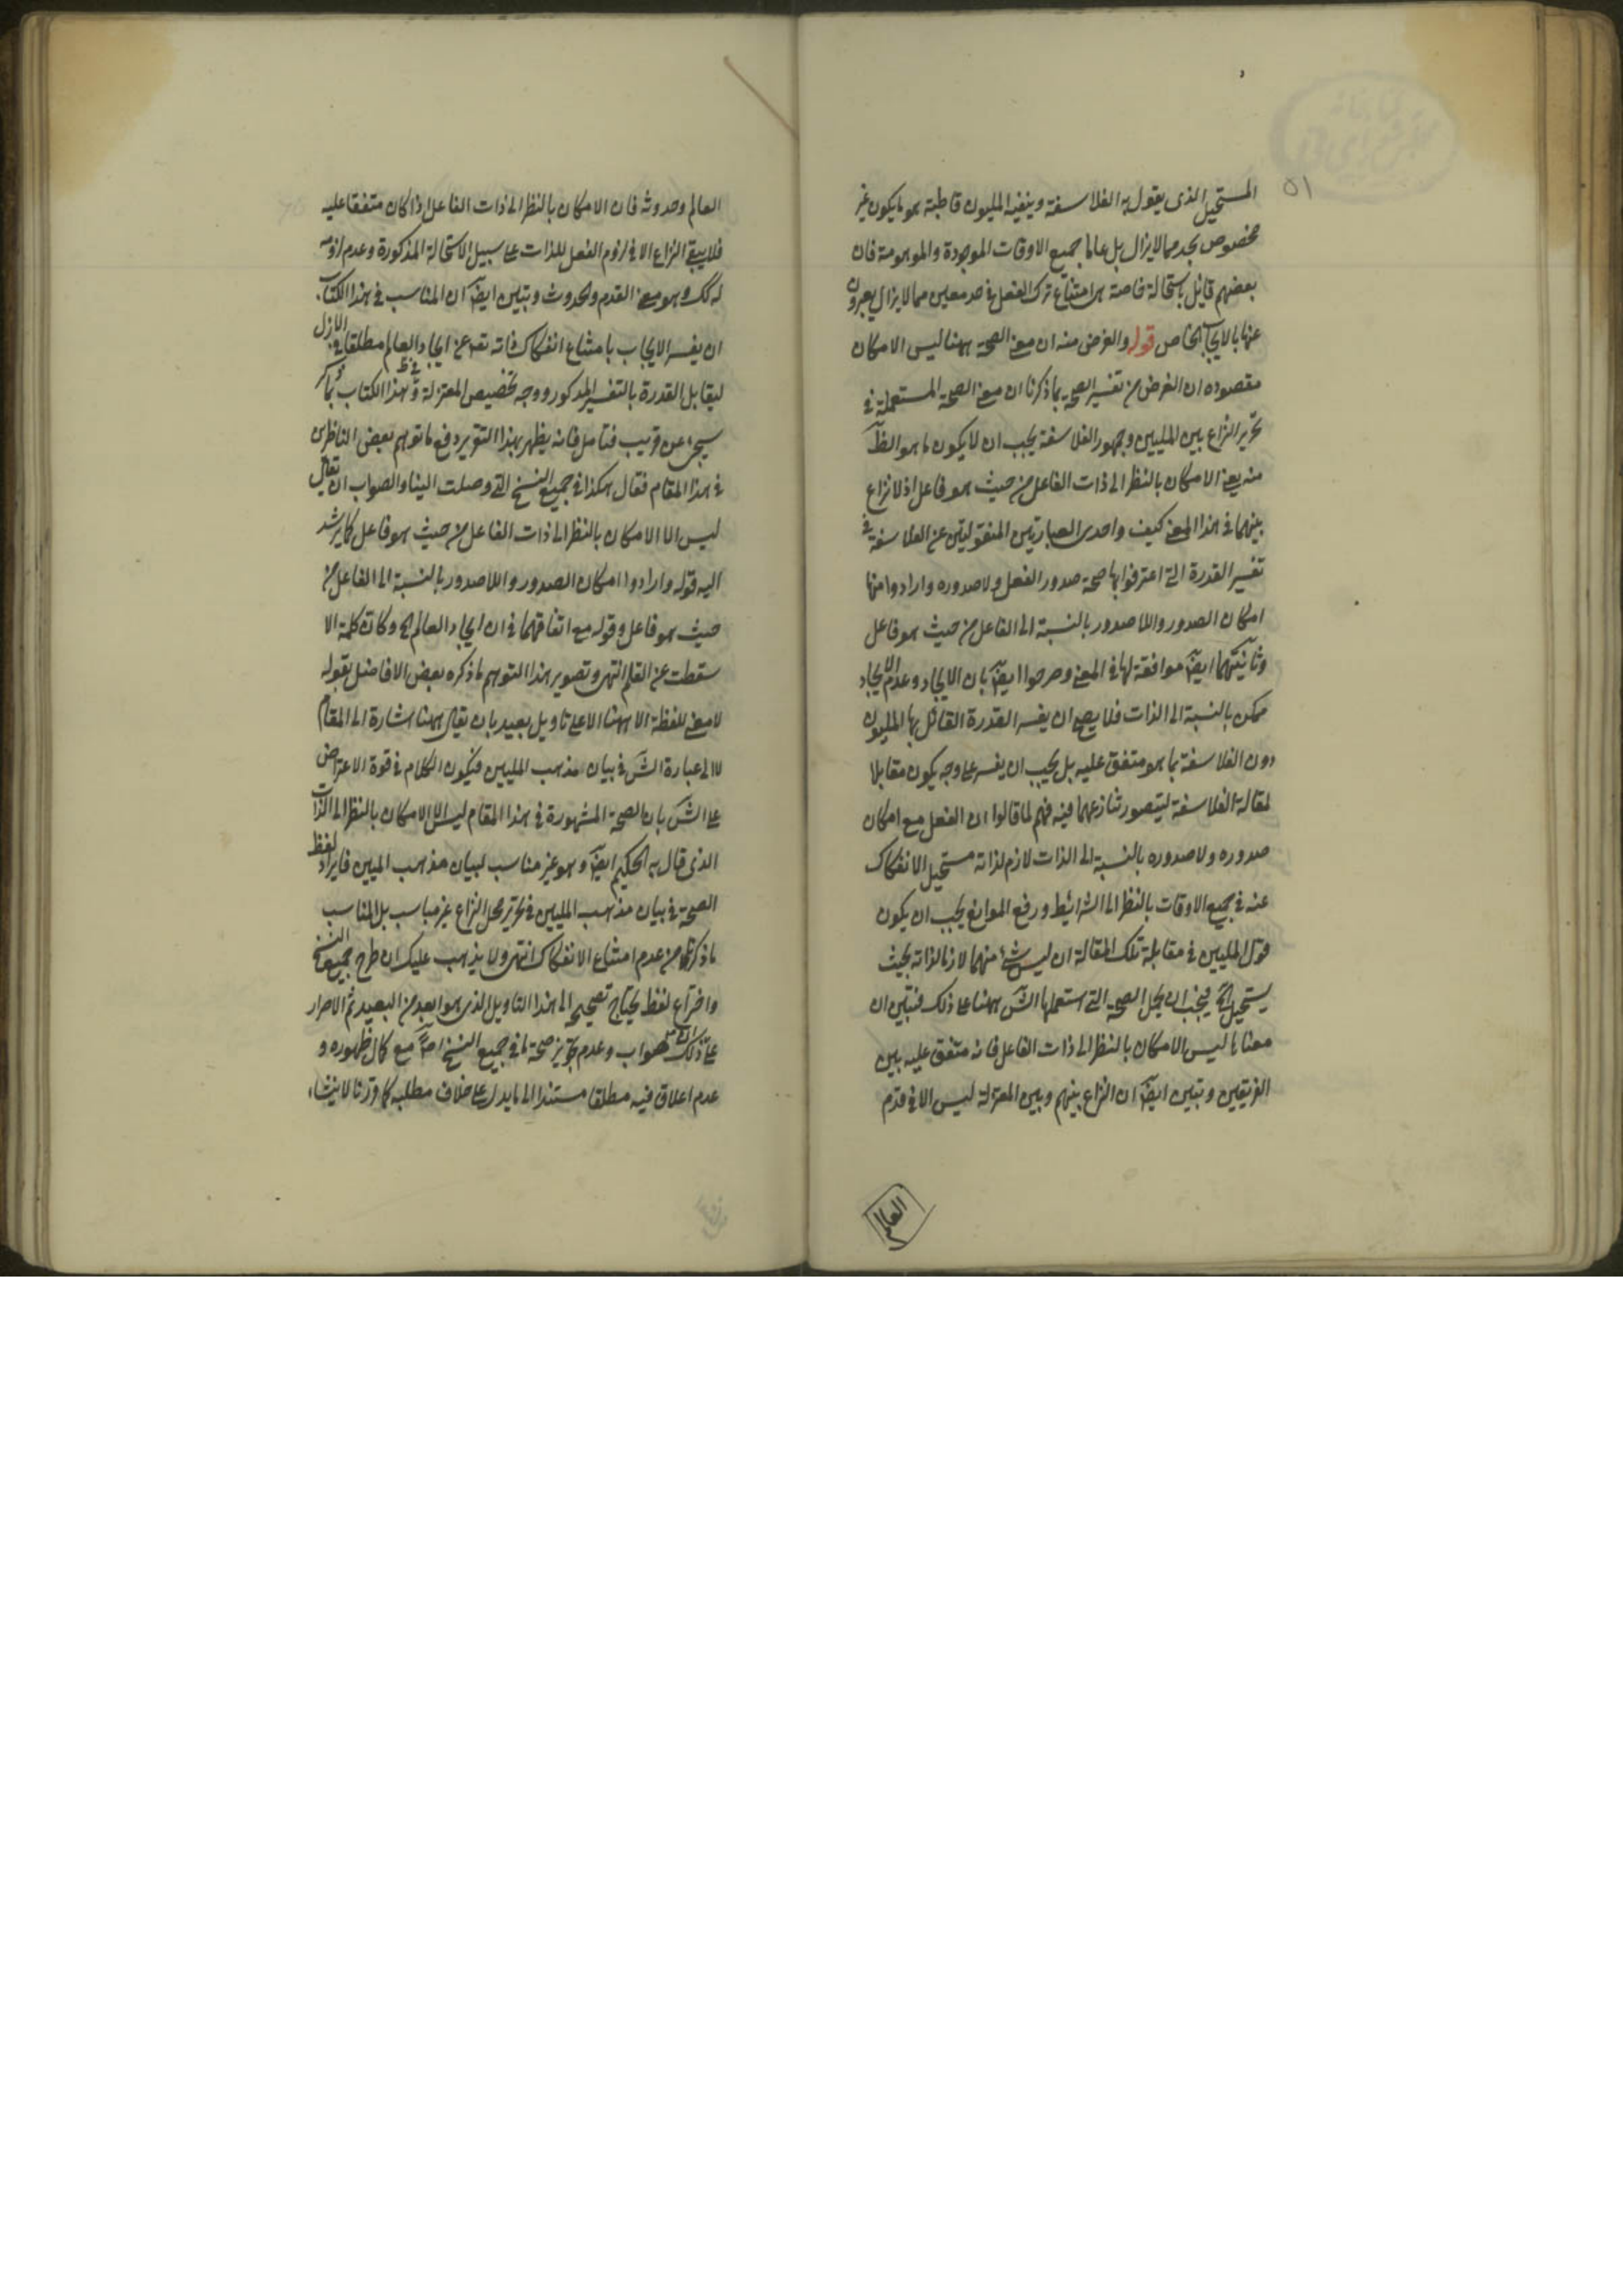 ٥١
المستحيل الذى يقول به الفلاسفة وينفيه المليون قاطبة هو ما يكون غير
مخصوص بحد مما لا يزال بل عاما جميع الاوقات الموجودة والموهومة فان
بعضهم قايل باستحالة خاصة هى امتناع ترك الفعل فى حد معين مما لا يزال يعبرون
عنها بالايجاب الخاص قوله والغرض منه ان معنى الصحة ههنا ليس الامكان
مقصوده ان الغرض من تفسير الصحة بما ذكرنا ان معنى الصحة المستعملة فى
تحرير النزاع بين المليين وجمهور الفلاسفة يجب ان لا يكون ما هو الظ
منه يعنى الامكان بالنظر الى ذات الفاعل من حيث هو فاعل اذ لا نزاع
بينهما فى هذا المعنى كيف واحدى العبارتين المنقولتين عن الفلاسفة فى
تفسير القدرة التى اعترفوا بها صحة صدور الفعل ولا صدوره وارادوا منها
امكان الصدور واللا صدور بالنسبة الى الفاعل من حيث هو فاعل
وثانيتهما ايض موافقة لها فى المعنى وصرحوا ايض بان الايجاد وعدم الايجاد
ممكن بالنسبة الى الذات فلا يصح ان يفسر القدرة القائل بها المليون
دون الفلاسفة بما هو متفق عليه بل يجب ان يفسر على وجه يكون مقابلا
لمقالة الفلاسفة ليتصور تنازعهما فيه فهم لما قالوا ان الفعل مع امكان
صدوره ولا صدوره بالنسبة الى الذات لازم لذاته مستحيل الانفكاك
عنه فى جميع الاوقات بالنظر الى الشرائيط ورفع الموانع يجب ان يكون
قول المليين فى مقابلة تلك المقالة ان ليس شئ منهما لازما لذاته بحيث
يستحيل الخ فيجب ان يحمل الصحة التى استعملها الش ههنا على ذلك فتبين ان
معناها ليس الامكان بالنظر الى ذات الفاعل فانه متفق عليه بين
الفريقين وتبين ايض ان النزاع بينهم وبين المعتزلة ليس الا فى قدم
العالم
العالم وحدوثه فان الامكان بالنظر الى ذات الفاعل اذا كان متفقا عليه
فلا يبقى النزاع الا فى لزوم الفعل للذات على سبيل الاستحالة المذكورة وعدم لزومه
له كك وهو معنى القدم والحدوث وتبين ايض ان المناسب فى هذا الكتاب
ان يفسر الايجاب بامتناع انفكاك ذاته تعه عن ايجاد العالم مطلقا فى الازل
ليقابل القدرة بالتفسير المذكور ووجه تخصيص المعتزلة فى هذا الكتاب
سيجئ عن قريب فتامل فانه يظهر بهذا التقرير دفع ما توهم بعض الناظرين
فى هذا المقام فقال هكذا فى جميع النسخ التى وصلت الينا والصواب ان يقال
ليس الا الامكان بالنظر الى ذات الفاعل من حيث هو فاعل كما يرشد
اليه قوله وارادوا امكان الصدور واللا صدور بالنسبة الى الفاعل من
حيث هو فاعل وقوله مع اتفاقهما فى ان ايجاد العالم الخ وكانّ كلمة الا
سقطت عن القلم انتهى وتصوير هذا التوهم ما ذكره بعض الافاضل بقوله
لا معنى للفظة الا ههنا الا على تاويل بعيد بان يقال ههنا اشارة الى المقام
لا الى عبارة الش فى بيان مذهب المليين فيكون الكلام فى قوة الاعتراض
على الش بان الصحة المشهورة فى هذا المقام ليس الا الامكان بالنظر الى الذات
الذى قال به الحكيم ايض وهو غير مناسب لبيان مذهب الميين فايراد لفظ
الصحة فى بيان مذهب المليين فى تحرير محل النزاع غير مناسب بل المناسب
ما ذكرتها من عدم امتناع الانفكاك انتهى ولا يذهب عليك ان طرح جميع النسخ
واختراع لفظ يحتاج تصحيحه الى هذا التاويل الذى هو ابعد من البعيد ثم الاصرار
على ان ذلك صواب وعدم تجويز صحة ما فى جميع النسخ اصلا مع كمال ظهوره و
عدم اغلاق فيه مطلقا مستندا الى ما يدل على خلاف مطلبه كما قررنا لا ينشاء